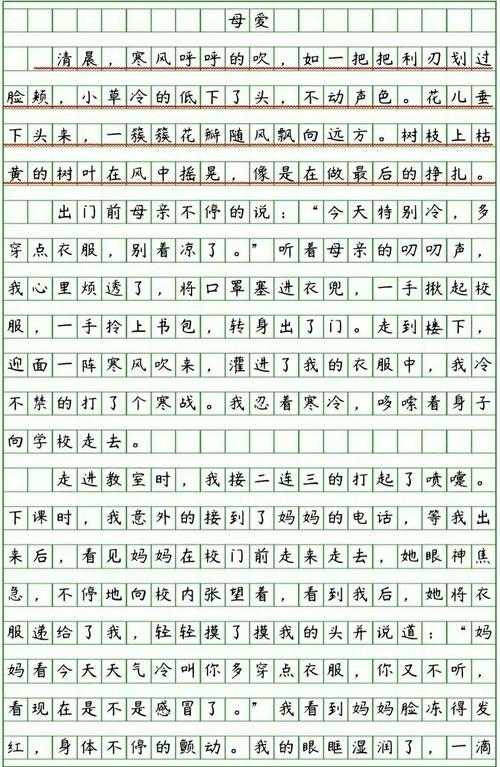 母爱
清晨，寒风呼呼的吹，如一把把利刃划过
脸颊，小草冷的低下了头，不动声色。花儿垂
下头来，一簇簇花瓣随风飘向远方。树枝上枯
黄的树叶在风中摇晃，像是在做最后的挣扎。
出门前母亲不停的说：“今天特别冷，多
穿点衣服，别着凉了。”听着母亲的叨叨声，
我心里烦透了，将口罩塞进衣兜，一手揪起校
服，一手拎上书包，转身出了门。走到楼下，
迎面一阵寒风吹来，灌进了我的衣服中，我冷
不禁的打了个寒战。我忍着寒冷，哆嗦着身子
向学校走去。
走进教室时，我接二连三的打起了喷嚏。
下课时，我意外的接到了妈妈的电话，等我出
来后，看见妈妈在校门前走来走去，她眼神焦
急，不停地向校内张望着，看到我后，她将衣
服递给了我，轻轻摸了摸我的头并说道：“妈
妈看今天天气冷叫你多穿点衣服，你又不听，
看现在是不是感冒了。”我看到妈妈脸冻得发
红，身体不停的颤动。我的眼眶湿润了，一滴